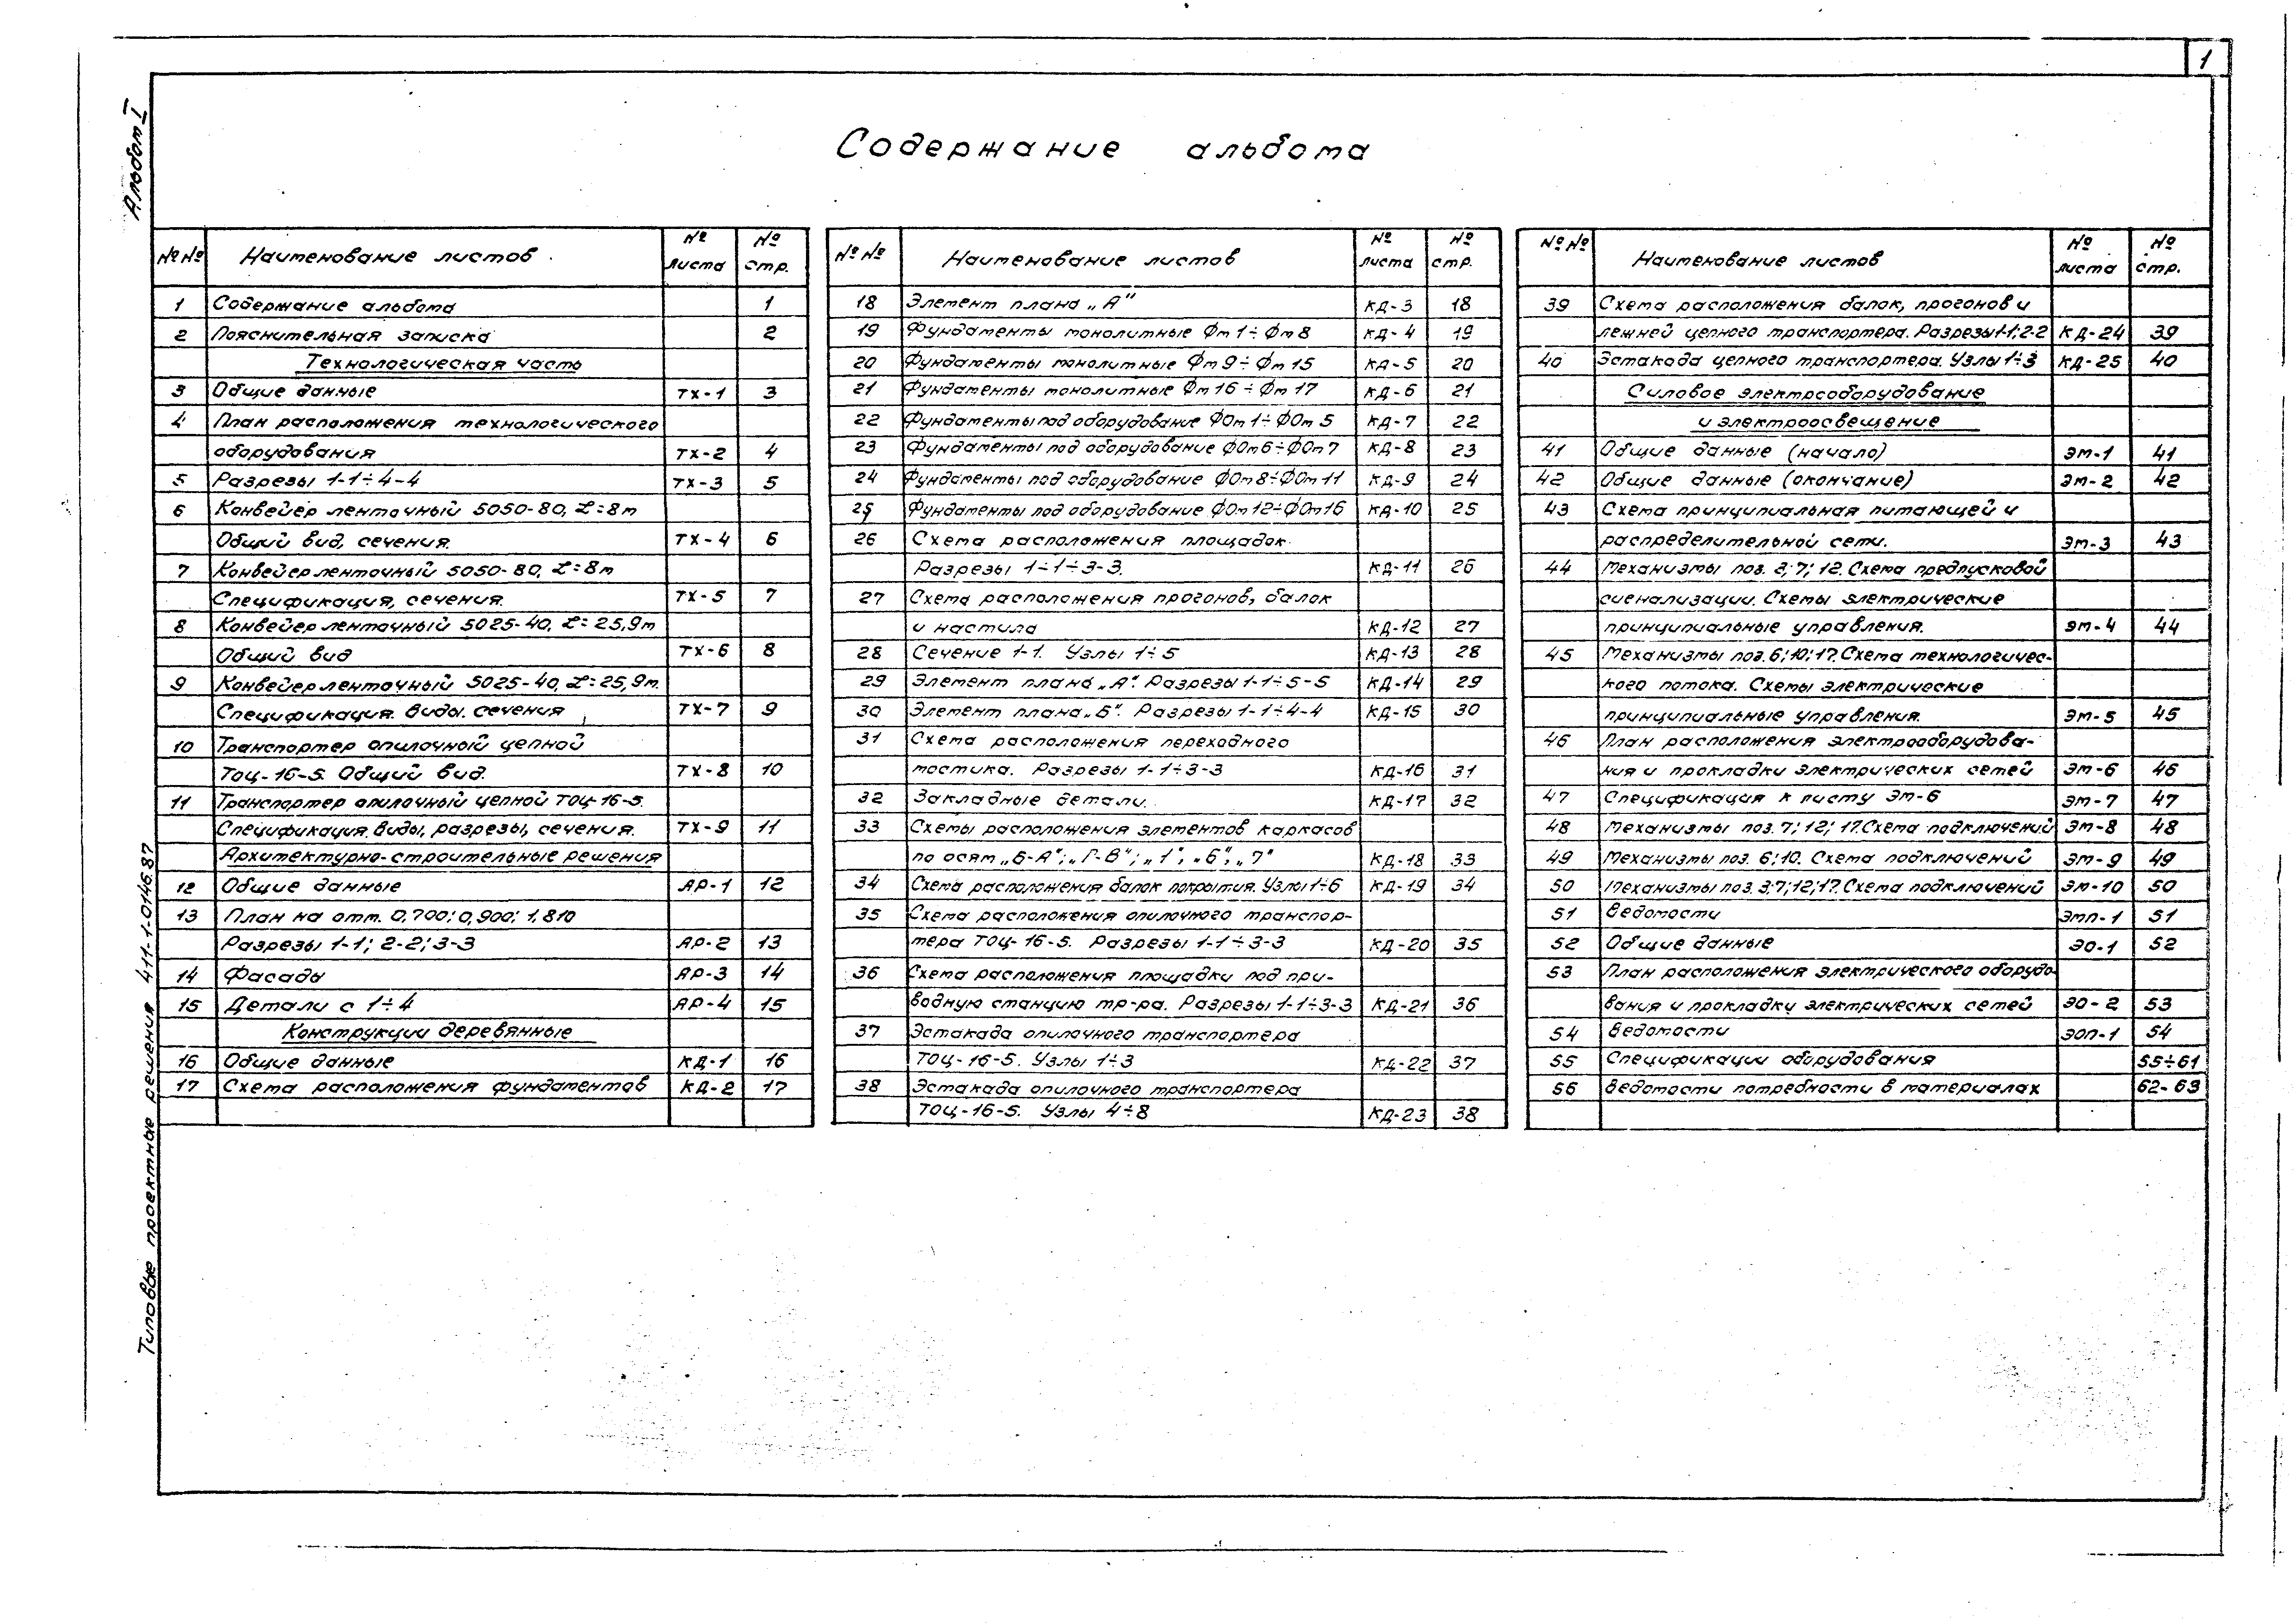 1
Альбом I
Содержание альбома
№№ Наименование листов № листа № стр.
1 Содержание альбома 1
2 Пояснительная записка 2
Технологическая часть
3 Общие данные ТХ-1 3
4 План расположения технологического
оборудования ТХ-2 4
5 Разрезы 1-1÷4-4 ТХ-3 5
6 Конвейер ленточный 5050-80, L=8м
Общий вид, сечения. ТХ-4 6
7 Конвейер ленточный 5050-80, L=8м
Спецификация, сечения. ТХ-5 7
8 Конвейер ленточный 5025-40, L=25,9м
Общий вид ТХ-6 8
9 Конвейер ленточный 5025-40, L=25,9м.
Спецификация. Виды. сечения ТХ-7 9
10 Транспортер опилочный цепной
ТОЦ-16-5. Общий вид. ТХ-8 10
11 Транспортер опилочный цепной ТОЦ-16-5.
Спецификация. Виды, разрезы, сечения. ТХ-9 11
Архитектурно-строительные решения
12 Общие данные АР-1 12
13 План на отм. 0,700; 0,900; 1,810
Разрезы 1-1; 2-2; 3-3 АР-2 13
14 Фасады АР-3 14
15 Детали с 1÷4 АР-4 15
Конструкции деревянные
16 Общие данные КД-1 16
17 Схема расположения фундаментов КД-2 17
№№ Наименование листов № листа № стр.
18 Элемент плана „А" КД-3 18
19 Фундаменты монолитные Фм1÷Фм8 КД-4 19
20 Фундаменты монолитные Фм9÷Фм15 КД-5 20
21 Фундаменты монолитные Фм16÷Фм17 КД-6 21
22 Фундаменты под оборудование ФОм1÷ФОм5 КД-7 22
23 Фундаменты под оборудование ФОм6÷ФОм7 КД-8 23
24 Фундаменты под оборудование ФОм8÷ФОм11 КД-9 24
25 Фундаменты под оборудование ФОм12÷ФОм16 КД-10 25
26 Схема расположения площадок.
Разрезы 1-1÷3-3. КД-11 26
27 Схема расположения прогонов, балок
и настила КД-12 27
28 Сечение 1-1. Узлы 1÷5 КД-13 28
29 Элемент плана „А". Разрезы 1-1÷5-5 КД-14 29
30 Элемент плана „Б". Разрезы 1-1÷4-4 КД-15 30
31 Схема расположения переходного
мостика. Разрезы 1-1÷3-3 КД-16 31
32 Закладные детали. КД-17 32
33 Схемы расположения элементов каркасов
по осям „Б-А"; „Г-В"; „1", „6", „7" КД-18 33
34 Схема расположения балок покрытия. Узлы 1÷6 КД-19 34
35 Схема расположения опилочного транспор-
тера ТОЦ-16-5. Разрезы 1-1÷3-3 КД-20 35
36 Схема расположения площадки под при-
водную станцию тр-ра. Разрезы 1-1÷3-3 КД-21 36
37 Эстакада опилочного транспортера
ТОЦ-16-5. Узлы 1÷3 КД-22 37
38 Эстакада опилочного транспортера
ТОЦ-16-5. Узлы 4÷8 КД-23 38
№№ Наименование листов № листа № стр.
39 Схема расположения балок, прогонов и
лежней цепного транспортера. Разрезы 1-1; 2-2 КД-24 39
40 Эстакада цепного транспортера. Узлы 1÷3 КД-25 40
Силовое электрооборудование
и электроосвещение
41 Общие данные (начало) ЭМ-1 41
42 Общие данные (окончание) ЭМ-2 42
43 Схема принципиальная питающей и
распределительной сети. ЭМ-3 43
44 Механизмы поз. 2; 7; 12. Схема предпусковой
сигнализации. Схемы электрические
принципиальные управления. ЭМ-4 44
45 Механизмы поз. 6; 10; 17. Схема технологичес-
кого потока. Схемы электрические
принципиальные управления. ЭМ-5 45
46 План расположения электрооборудова-
ния и прокладки электрических сетей ЭМ-6 46
47 Спецификация к листу ЭМ-6 ЭМ-7 47
48 Механизмы поз. 7; 12; 17. Схема подключений ЭМ-8 48
49 Механизмы поз. 6; 10. Схема подключений ЭМ-9 49
50 Механизмы поз. 3; 7; 12; 17. Схема подключений ЭМ-10 50
51 Ведомости ЭМП-1 51
52 Общие данные ЭО-1 52
53 План расположения электрического оборудо-
вания и прокладки электрических сетей ЭО-2 53
54 Ведомости ЭОП-1 54
55 Спецификации оборудования 55÷61
56 Ведомости потребности в материалах 62-63
Типовые проектные решения 411-1-0146.87